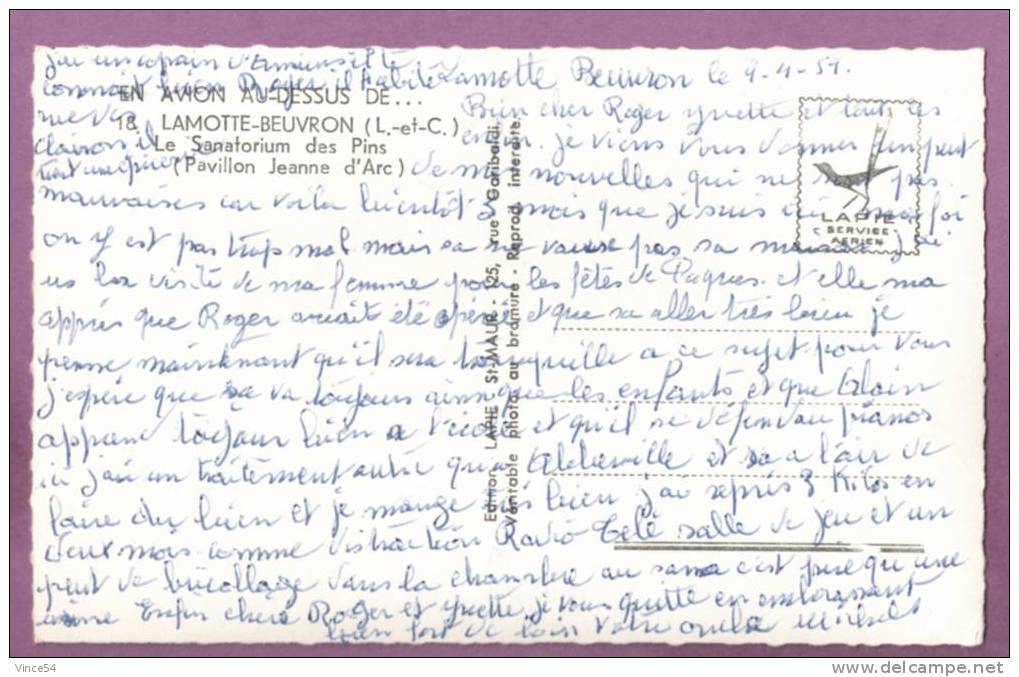 j'ai un copain d'
connait bien Roger il habite
rue
Clairon il
EN AVION AU-DESSUS DE...
18. LAMOTTE-BEUVRON (L.-et-C.)
Le Sanatorium des Pins
(Pavillon Jeanne d'Arc)
Edition LAPIE St-MAUR - 125, rue Garibaldi.
Véritable photo. au bromure - Reprod. interdite.
LAPIE
SERVICE
AERIEN
Lamotte Beuvron le 9-4-59.
Bien cher Roger yvette et tout les
enfin. je viens vous donner un peut
de mes nouvelles qui ne sont pas
mauvaises car voila bientôt 3 mois que je suis ici ma foi
on y est pas trop mal mais sa ne vaux pas sa maison j'ai
us la visite de ma femme pour les fêtes de Pâques et elle ma
appris que Roger aviait été opéré et que sa aller très bien je
pense maintenant qu'il sera tranquille a ce sujet. pour vous
j'espère que sa va toujours ainsi que les enfants et que Alain
apprend toujour bien a l'école et qu'il se défend au pianos
ici j'ai un traitement autre qu'a Abbeville et sa a l'air de
faire du bien et je mange très bien j'ai repris 3 Kilos en
deux mois comme distraction Radio Télé salle de jeu et un
peut de bricollage dans la chambre au sana c'est pire qu'une
usine Enfin chers Roger et yvette je vous quitte en embrassant
bien fort de loin votre oncle Michel
Vince54
www.delcampe.net